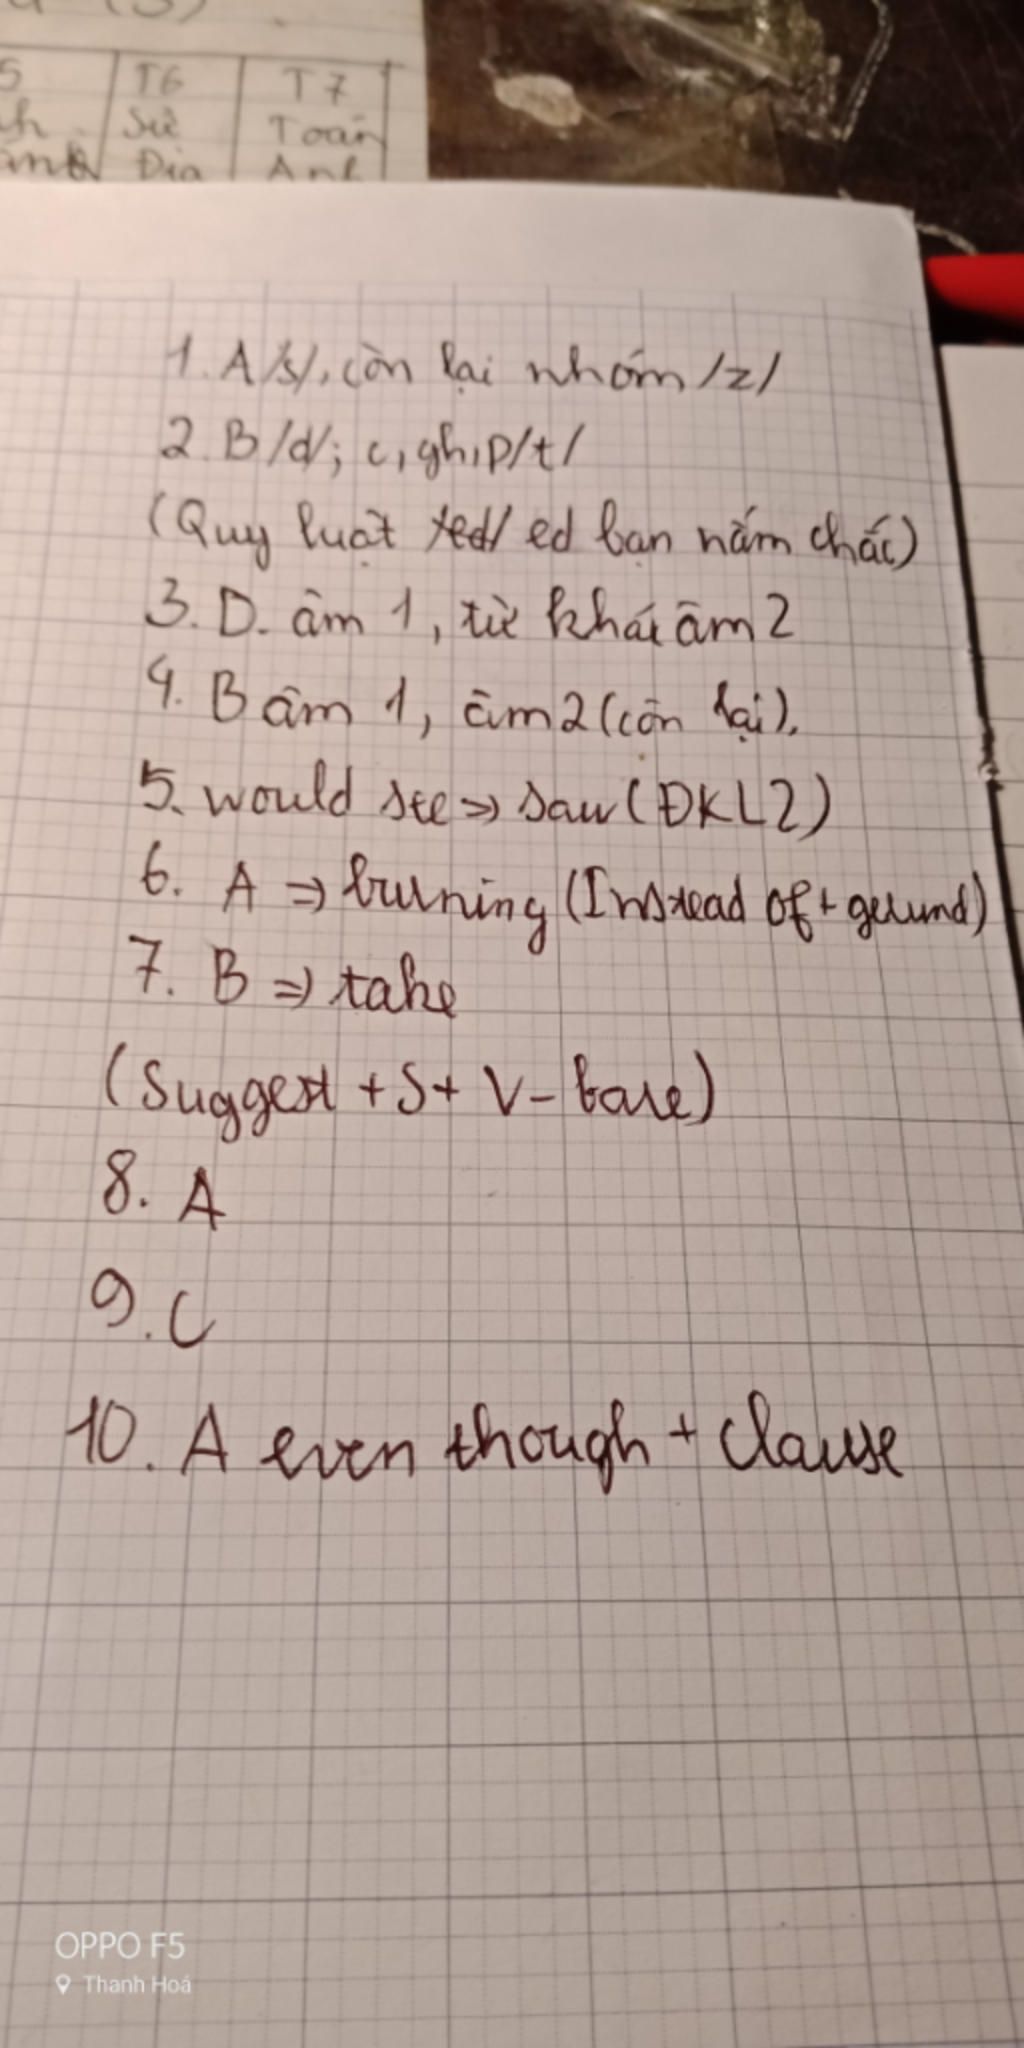 T6
T7
Sử
Toán
Địa
Anh
1. A/s/, còn lại nhóm /z/
2. B/d/; c, gh, p/t/
(Quy luật ed bạn nắm chắc)
3. D. âm 1, từ khái âm 2
4. B âm 1, âm 2 (còn lại).
5. would see => saw (ĐKL2)
6. A => bruning (Instead of + gerund)
7. B => take
(Suggest + S + V - base)
8. A
9. C
10. A even though + clause
OPPO F5
Thanh Hoá